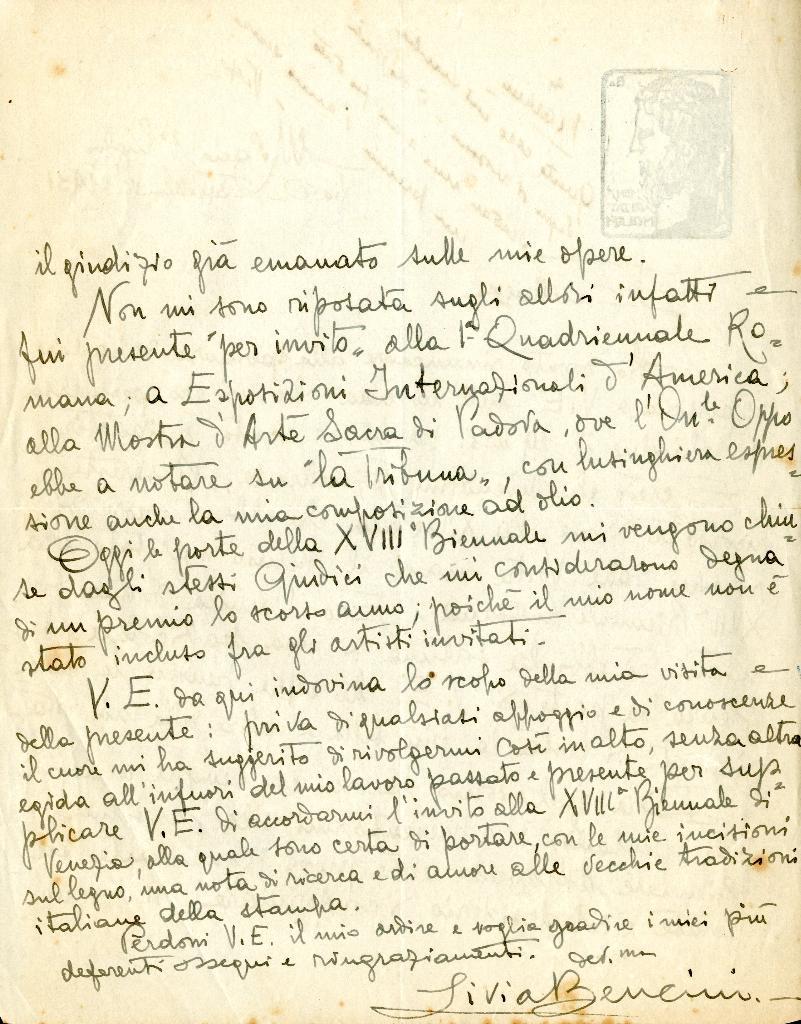 il giudizio già emanato sulle mie opere.
Non mi sono riposata sugli allori infatti -
fui presente "per invito„ alla 1ª Quadriennale Ro=
mana; a Esposizioni Internazionali d'America;
alla Mostra d'Arte Sacra di Padova, ove l'On.le Oppo
ebbe a notare su "la Tribuna„, con lusinghiera espres=
sione anche la mia composizione ad olio.
Oggi le porte della XVIIIª Biennale mi vengono chiu=
se dagli stessi Giudici che mi considerarono degna
di un premio lo scorso anno; poichè il mio nome non è
stato incluso fra gli artisti invitati.-
V. E. da qui indovina lo scopo della mia visita e
della presente: priva di qualsiasi appoggio e di conoscenze
il cuore mi ha suggerito di rivolgermi così in alto, senza altra
egida all'infuori del mio lavoro passato e presente per sup=
plicare V.E. di accordarmi l'invito alla XVIIIª Biennale di
Venezia, alla quale sono certa di portare, con le mie incisioni
sul legno, una nota di ricerca e di amore alle vecchie tradizioni
italiane della stampa.
Perdoni V. E. il mio ardire e voglia gradire i miei più
deferenti ossequi e ringraziamenti. dev.ma
Livia Bencini.-